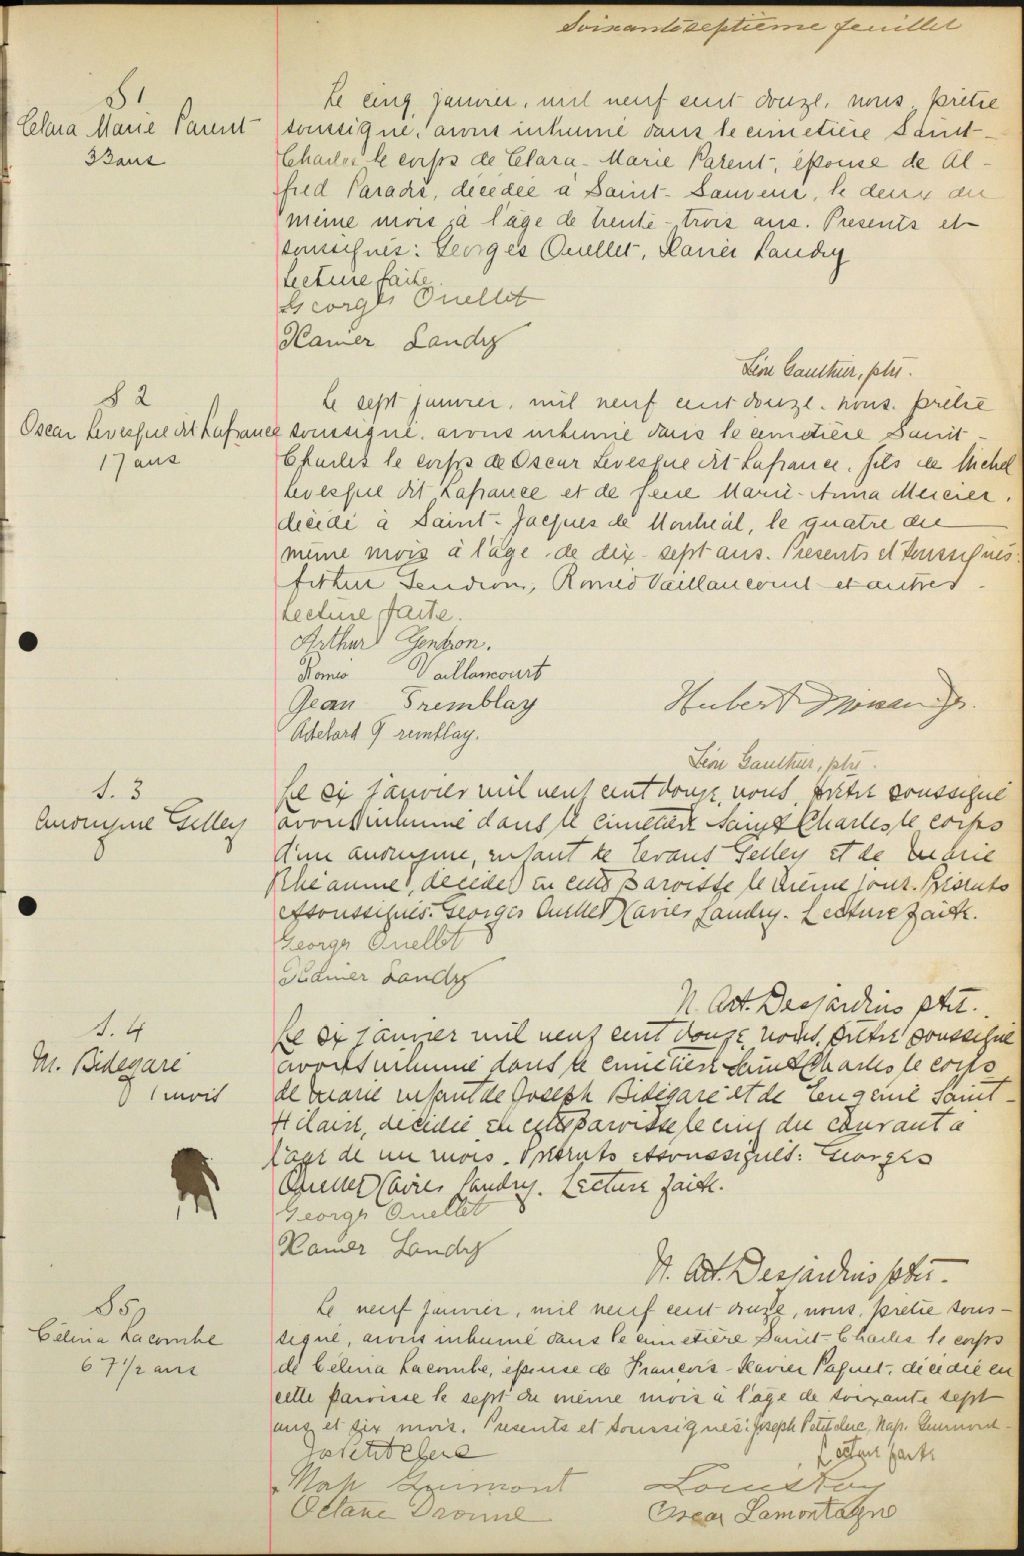 Soixante septième feuillet
S 1
Clara Marie Parent
33 ans
Le cinq janvier, mil neuf cent douze, nous, prêtre
soussigné, avons inhumé dans le cimetière Saint-
Charles le corps de Clara-Marie Parent, épouse de Al-
fred Paradis, décédée à Saint-Sauveur, le deux du
même mois à l'âge de trente-trois ans. Présents et
soussignés: Georges Ouellet, Xavier Landry
Lecture faite.
Georges Ouellet
Xavier Landry
Léon Gauthier, ptre.
S 2
Oscar Levesque dit Lafrance
17 ans
Le sept janvier, mil neuf cent douze, nous, prêtre
soussigné, avons inhumé dans le cimetière Saint-
Charles le corps de Oscar Levesque dit Lafrance, fils de Michel
Levesque dit Lafrance et de feue Marie-Anna Mercier,
décédé à Saint-Jacques de Montréal, le quatre du
même mois à l'âge de dix-sept ans. Présents et soussignés:
Arthur Gendron, Roméo Vaillancourt et autres.
Lecture faite.
Arthur Gendron.
Roméo Vaillancourt
Jean Tremblay
Hubert
Adelard Tremblay.
Léon Gauthier, ptre.
S. 3
Anonyme Gelley
Le six janvier mil neuf cent douze, nous, prêtre soussigné
avons inhumé dans le cimetière Saint Charles, le corps
d'un anonyme, enfant de Evans Gelley et de Marie
Rhéaume, décédé en cette paroisse le même jour. Présents
et soussignés: Georges Ouellet Xavier Landry. Lecture faite.
Georges Ouellet
Xavier Landry
N. Art. Desjardins ptre.
S. 4
M. Bidégaré
1 mois
Le six janvier mil neuf cent douze, nous, prêtre soussigné
avons inhumé dans le cimetière Saint Charles, le corps
de Marie enfant de Joseph Bidégaré et de Eugénie Saint-
Hilaire, décédée en cette paroisse le cinq du courant à
l'âge de un mois. Présents et soussignés: Georges
Ouellet Xavier Landry. Lecture faite.
Georges Ouellet
Xavier Landry
N. Art. Desjardins ptre.
S 5
Célina Lacombe
67 1/2 ans
Le neuf janvier, mil neuf cent douze, nous, prêtre sous-
signé, avons inhumé dans le cimetière Saint-Charles le corps
de Célina Lacombe, épouse de François-Xavier Paquet, décédée en
cette paroisse le sept du même mois à l'âge de soixante sept
ans et six mois. Présents et soussignés: Joseph Petitclerc, Nap. Guimont
Lecture faite
Jos Petitclerc
Nap Guimont
Louis Roy
Octave
Oscar Lamontagne